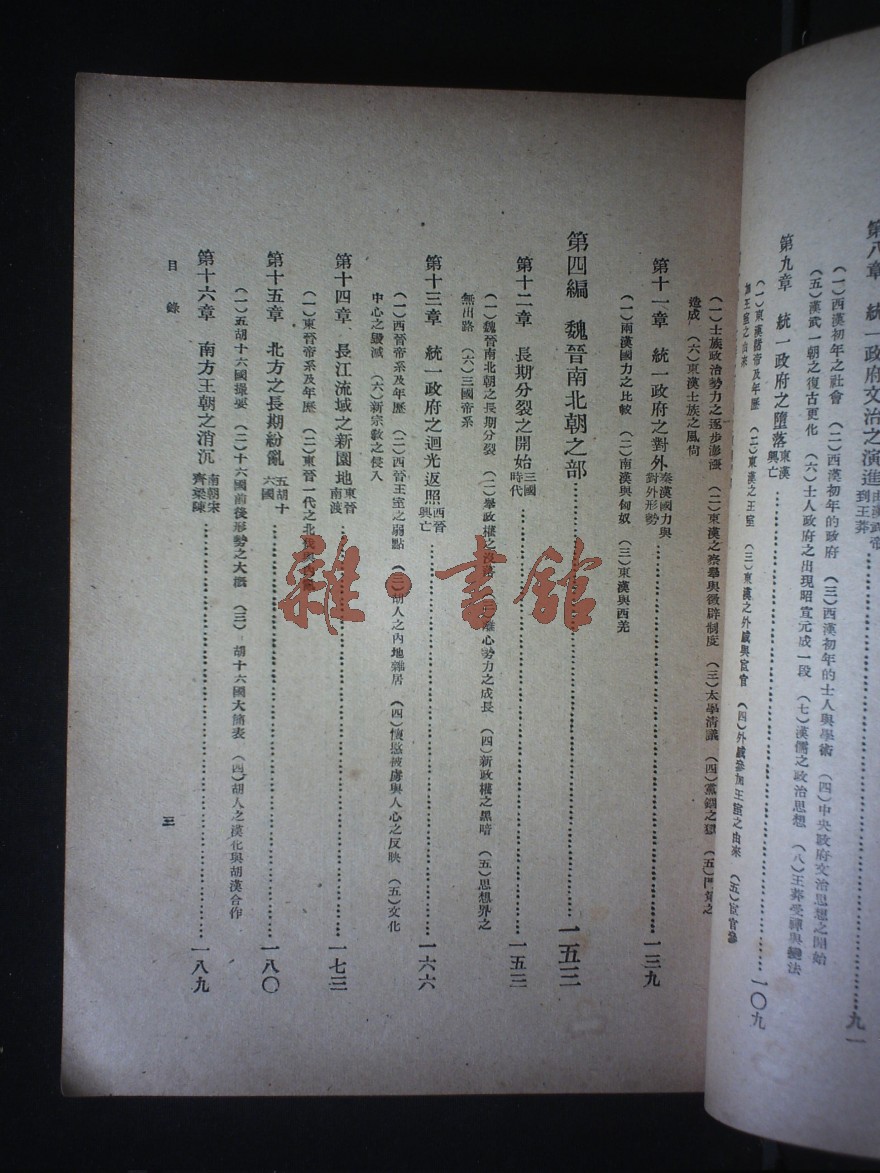 第八章　統一政府文治之演進由漢武帝到王莽……九一
（一）西漢初年之社會　（二）西漢初年的政府　（三）西漢初年的士人與學術　（四）中央政府文治思想之開始
（五）漢武一朝之復古更化　（六）士人政府之出現昭宣元成一段　（七）漢儒之政治思想　（八）王莽受禪與變法
第九章　統一政府之墮落東漢興亡……一〇九
（一）東漢諸帝及年歷　（二）東漢之王室　（三）東漢之外戚與宦官　（四）外戚參加王室之由來　（五）宦官參
加王室之由來
（一）士族政治勢力之逐步澎漲　（二）東漢之察舉與徵辟制度　（三）太學清議　（四）黨錮之獄　（五）門第之
造成　（六）東漢士族之風尚
第十一章　統一政府之對外秦漢國力與對外形勢……一三九
（一）兩漢國力之比較　（二）南漢與匈奴　（三）東漢與西羌
第四編　魏晉南北朝之部……一五三
第十二章　長期分裂之開始三國時代……一五三
（一）魏晉南北朝之長期分裂　（二）舉政權之　離心勢力之成長　（四）新政權之黑暗　（五）思想界之
無出路　（六）三國帝系
第十三章　統一政府之迴光返照西晉興亡……一六六
（一）西晉帝系及年歷　（二）西晉王室之弱點　（三）胡人之內地雜居　（四）懷愍被虜與人心之反映　（五）文化
中心之毀滅　（六）新宗教之侵入
第十四章　長江流域之新園地東晉南渡……一七三
（一）東晉帝系及年歷　（二）東晉一代之北
第十五章　北方之長期紛亂五胡十六國……一八〇
（一）五胡十六國撮要　（二）十六國前後形勢之大概　（三）　胡十六國大簡表　（四）胡人之漢化與胡漢合作
第十六章　南方王朝之消沉南朝宋齊梁陳……一八九
目　錄
三
雜·書館